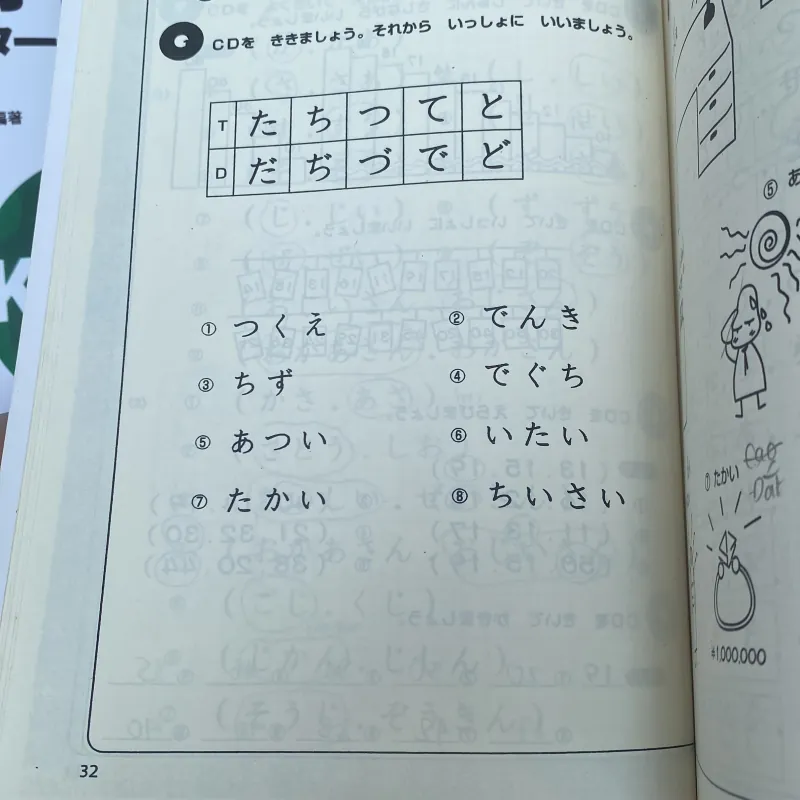 ター
編著
CDを ききましょう。それから いっしょに いいましょう。
T た ち つ て と
D だ ぢ づ で ど
① つくえ ② でんき
③ ちず ④ でぐち
⑤ あつい ⑥ いたい
⑦ たかい ⑧ ちいさい
32
⑤ あ
⑦ たかい
¥1,000,000